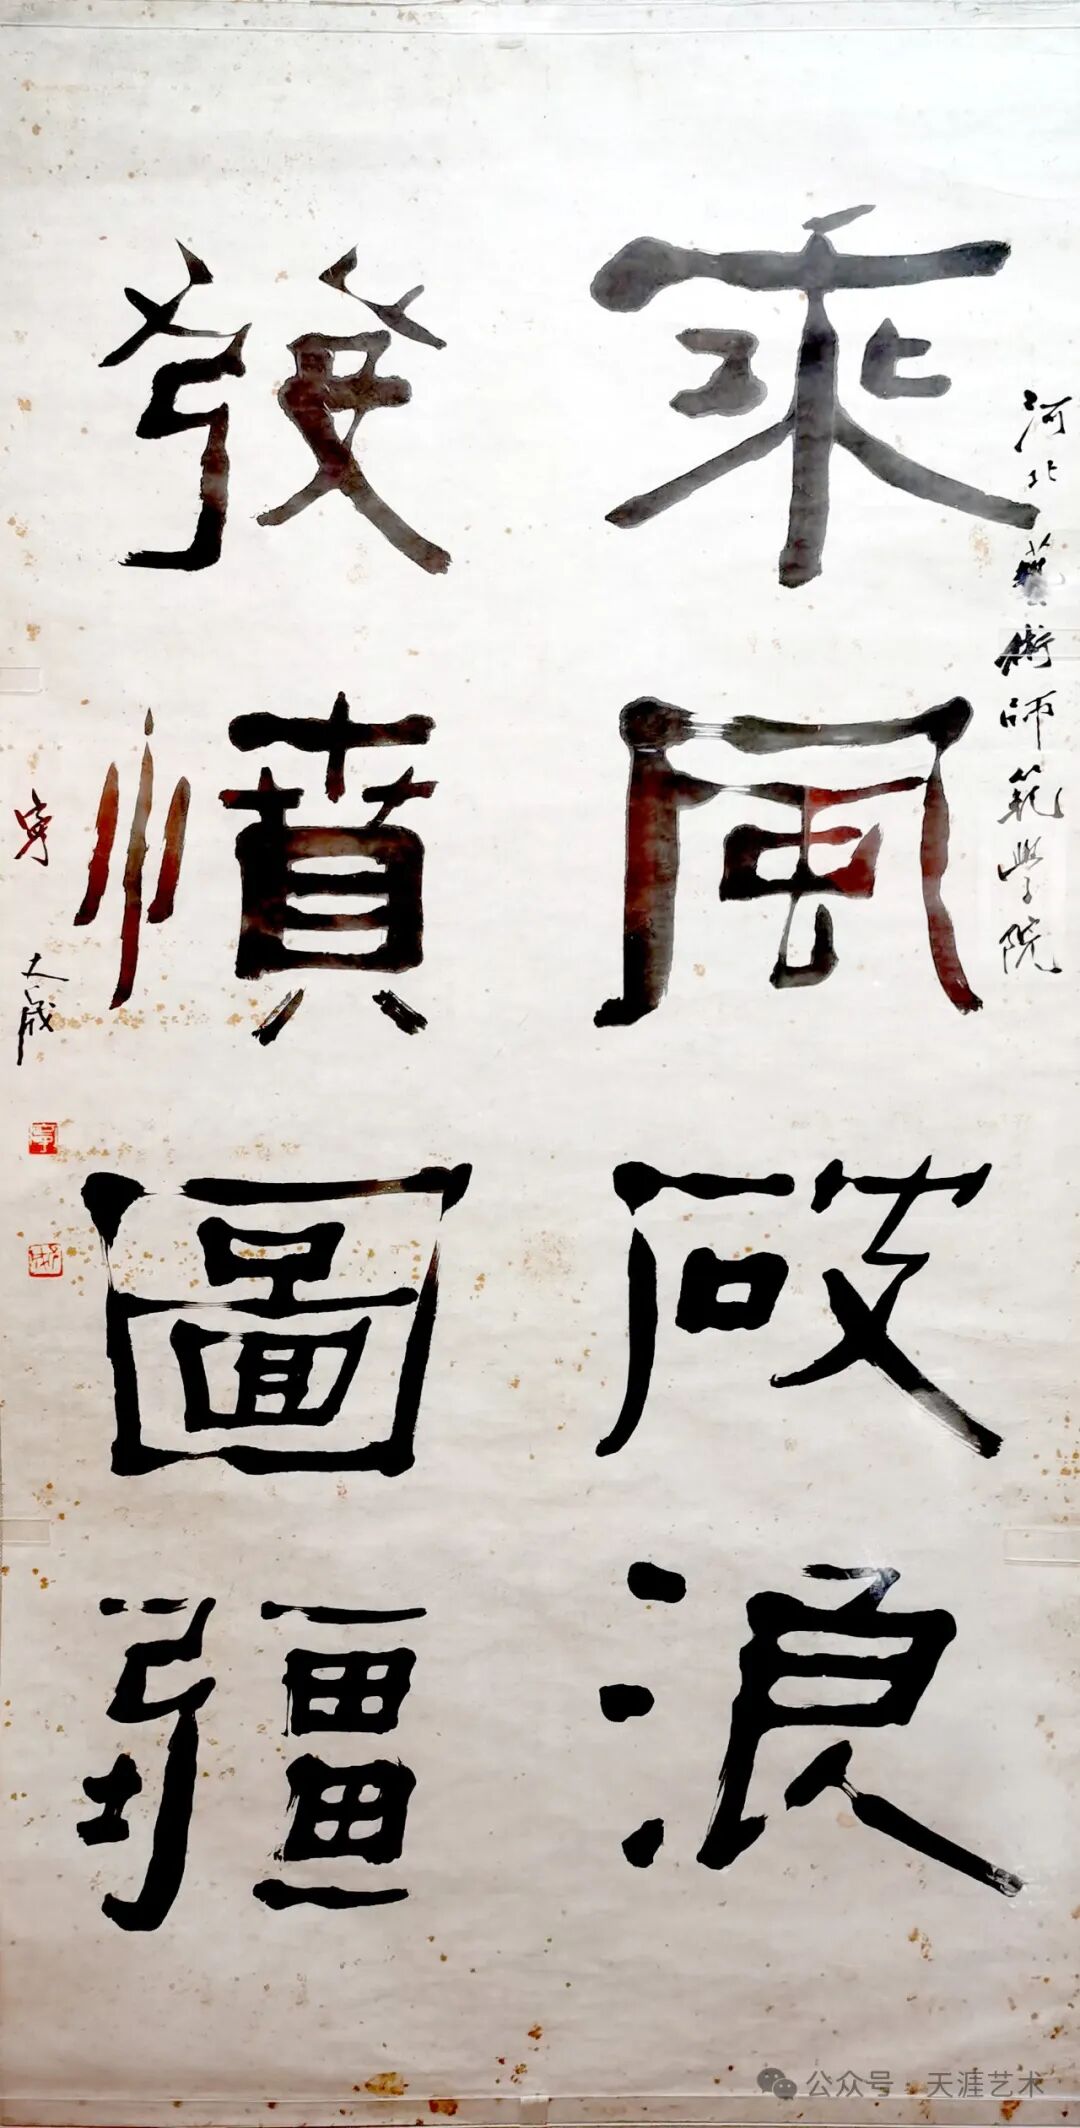 河北藝術師範學院
乘風破浪
發憤圖疆
寧大成
公众号 · 天涯艺术